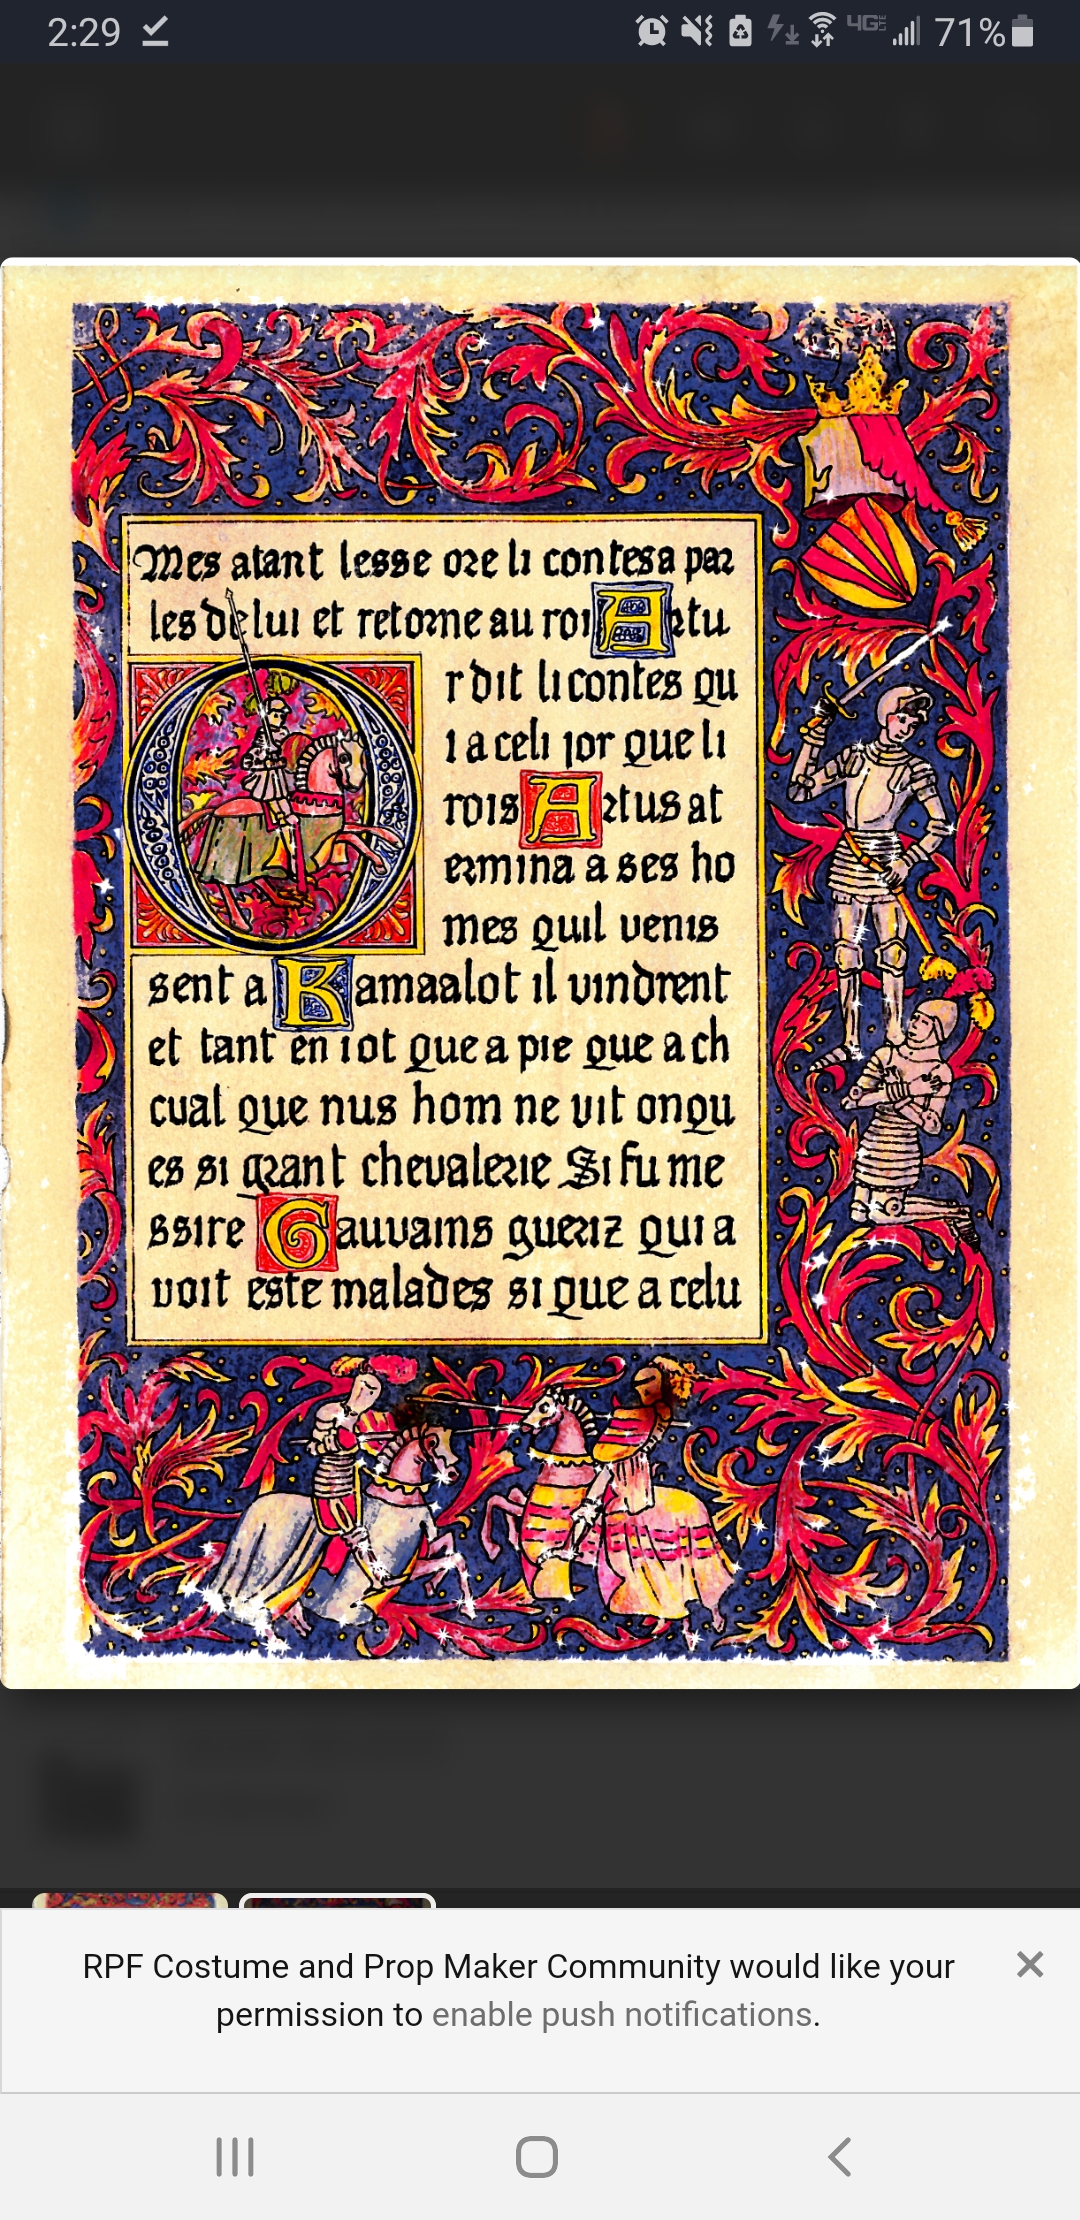 2:29
4G LTE
71%
Mes atant lesse ore li contes a par
les de lui et retorne au roi Artu
r dit li contes qu
i a celi jor que li
rois Artus at
ermina a ses ho
mes quil venis
sent a Kamaalot il vindrent
et tant en i ot que a pie que a ch
eual que nus hom ne vit onqu
es si grant chevalerie Si fu me
ssire Gauvains gueriz qui a
voit este malades si que a celu
RPF Costume and Prop Maker Community would like your
permission to enable push notifications.